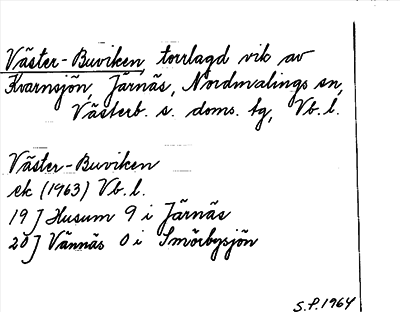 Väster-Buviken, torrlagd vik av
Kvarnsjön, Järnäs, Nordmalings sn,
Västerb. s. doms. tg, Vb. l.
Väster-Buviken
ek (1963) Vb. l.
19J Husum 9 i Järnäs
20J Vännäs 0 i Smörbysjön
S.P. 1964